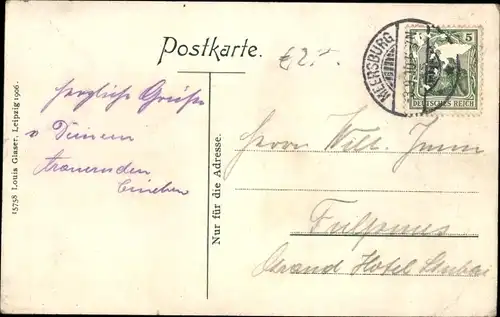 Postkarte.
£2.-
MEERSBURG
5
DEUTSCHES REICH
herzliche Grüße
v Deinem
trauernden
Herrn Willi
Fulpmes
Grand Hotel Stubai
Nur für die Adresse.
15758 Louis Glaser, Leipzig 1906.